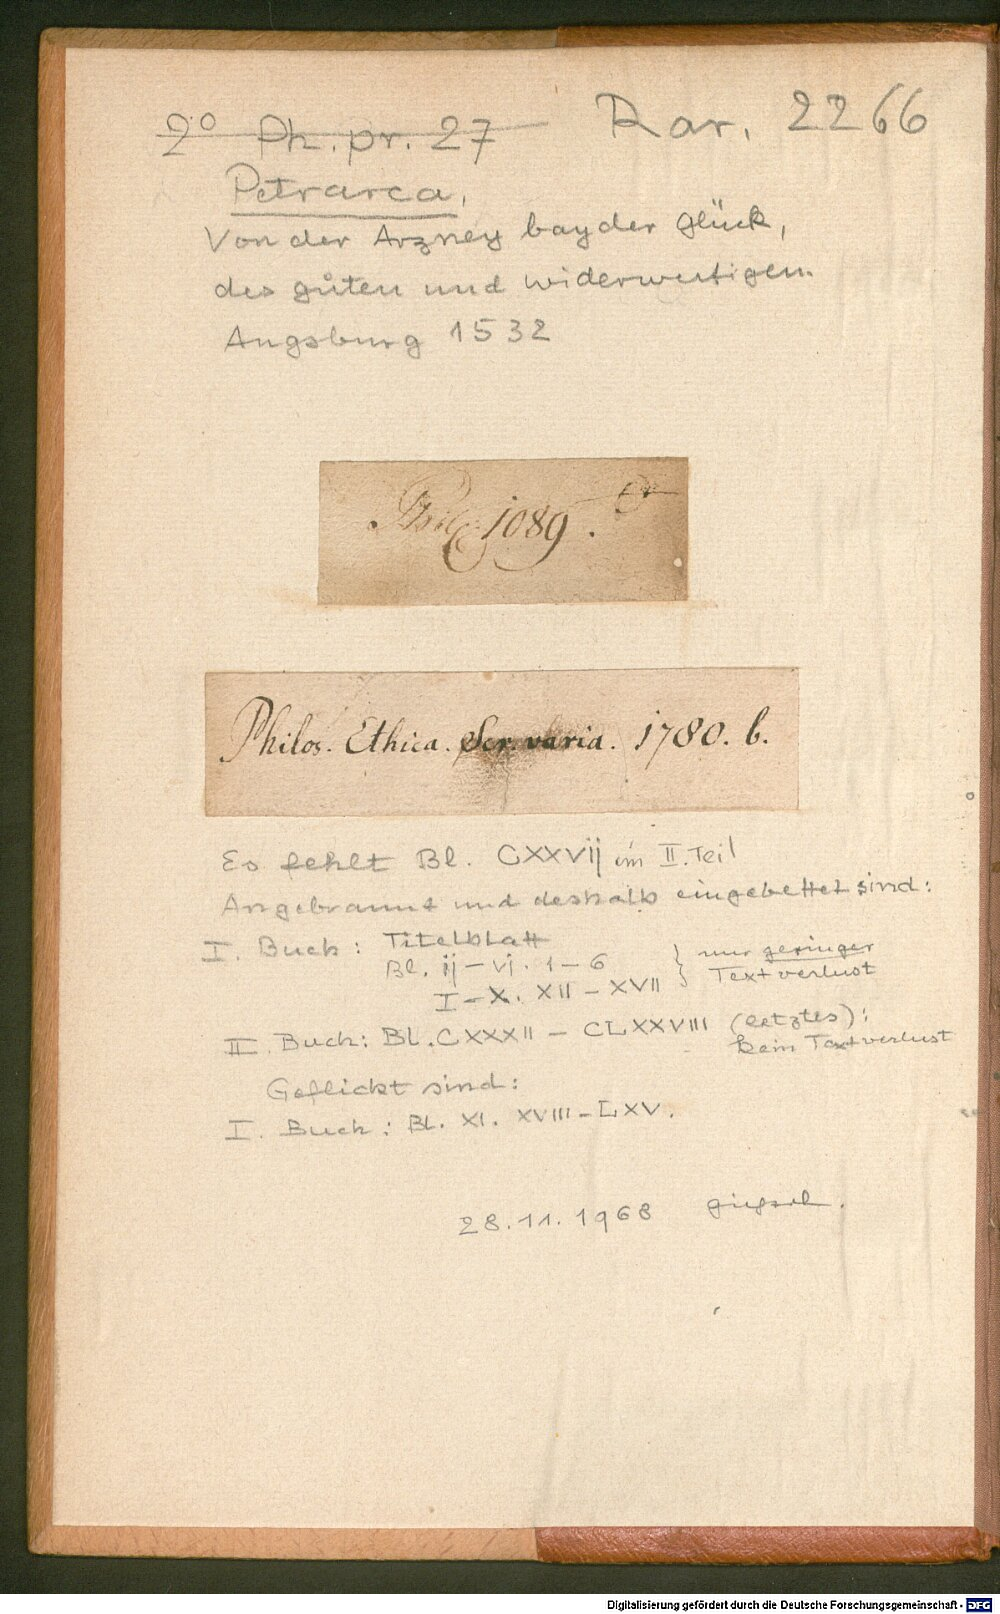 2° Ph. pr. 27 Rar. 2266
Petrarca,
Von der Arzney bayder Glück,
des gůten und widerwertigen.
Augsburg 1532
1089.
Philos. Ethica. Scr. varia. 1780. b.
Es fehlt Bl. CXXVij im II. Teil
Angebrannt und deshalb eingebettet sind:
I. Buch: Titelblatt
Bl. ij – vj. 1–6 } nur geringer
I – X. XII – XVII Textverlust
II. Buch: Bl. CXXXII – CLXXVIII (letztes):
kein Textverlust
Geflickt sind:
I. Buch: Bl. XI. XVIII – LXV.
28.11.1968
Digitalisierung gefördert durch die Deutsche Forschungsgemeinschaft - DFG